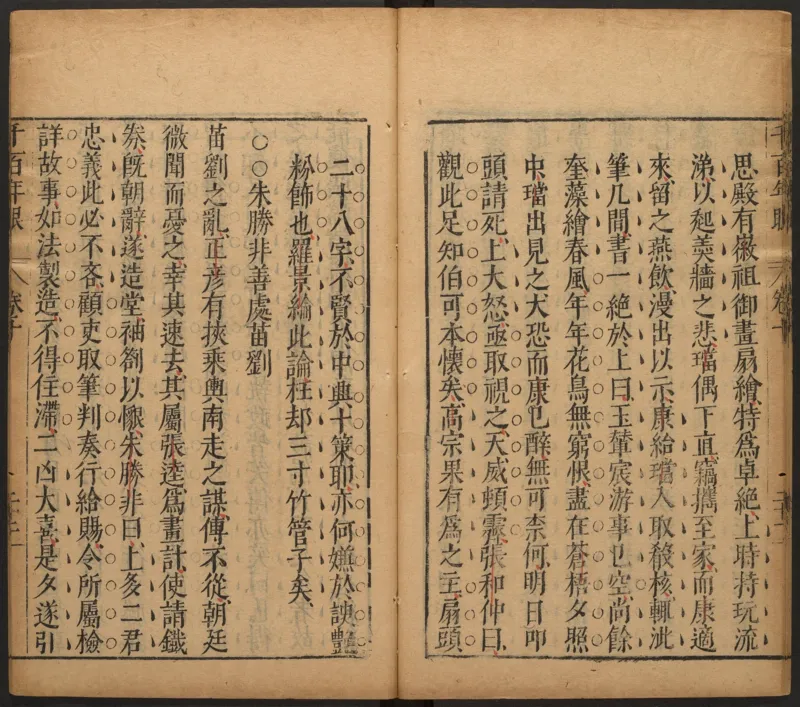 千百年眼 卷十
思殿有徽祖御畫扇繪特爲卓絕上時持玩流
涕以起羹牆之悲璫偶下直竊攜至家而康適
來留之燕飲漫出以示康給璫入取殽核輒泚
筆几間書一絕於上曰玉輦宸游事已空尚餘
奎藻繪春風年年花鳥無窮恨盡在蒼梧夕照
中璫出見之大恐而康已醉無可柰何明日叩
頭請死上大怒亟取視之天威頓霽張和仲曰
觀此足知伯可本懷矣高宗果有爲之主扇頭
二十八字不賢於中興十策耶亦何嫌於諛豔
粉飾也羅景綸此論枉却三寸竹管子矣
○○朱勝非善處苗劉
苗劉之亂正彥有挾乘輿南走之謀傅不從朝廷
微聞而憂之幸其速去其屬張逵爲畫計使請鐵
劵旣朝辭遂造堂袖劄以懇朱勝非曰上多二君
忠義此必不吝顧吏取筆判奏行給賜令所屬檢
詳故事如法製造不得住滯二凶大喜是夕遂引
千百年眼 卷十